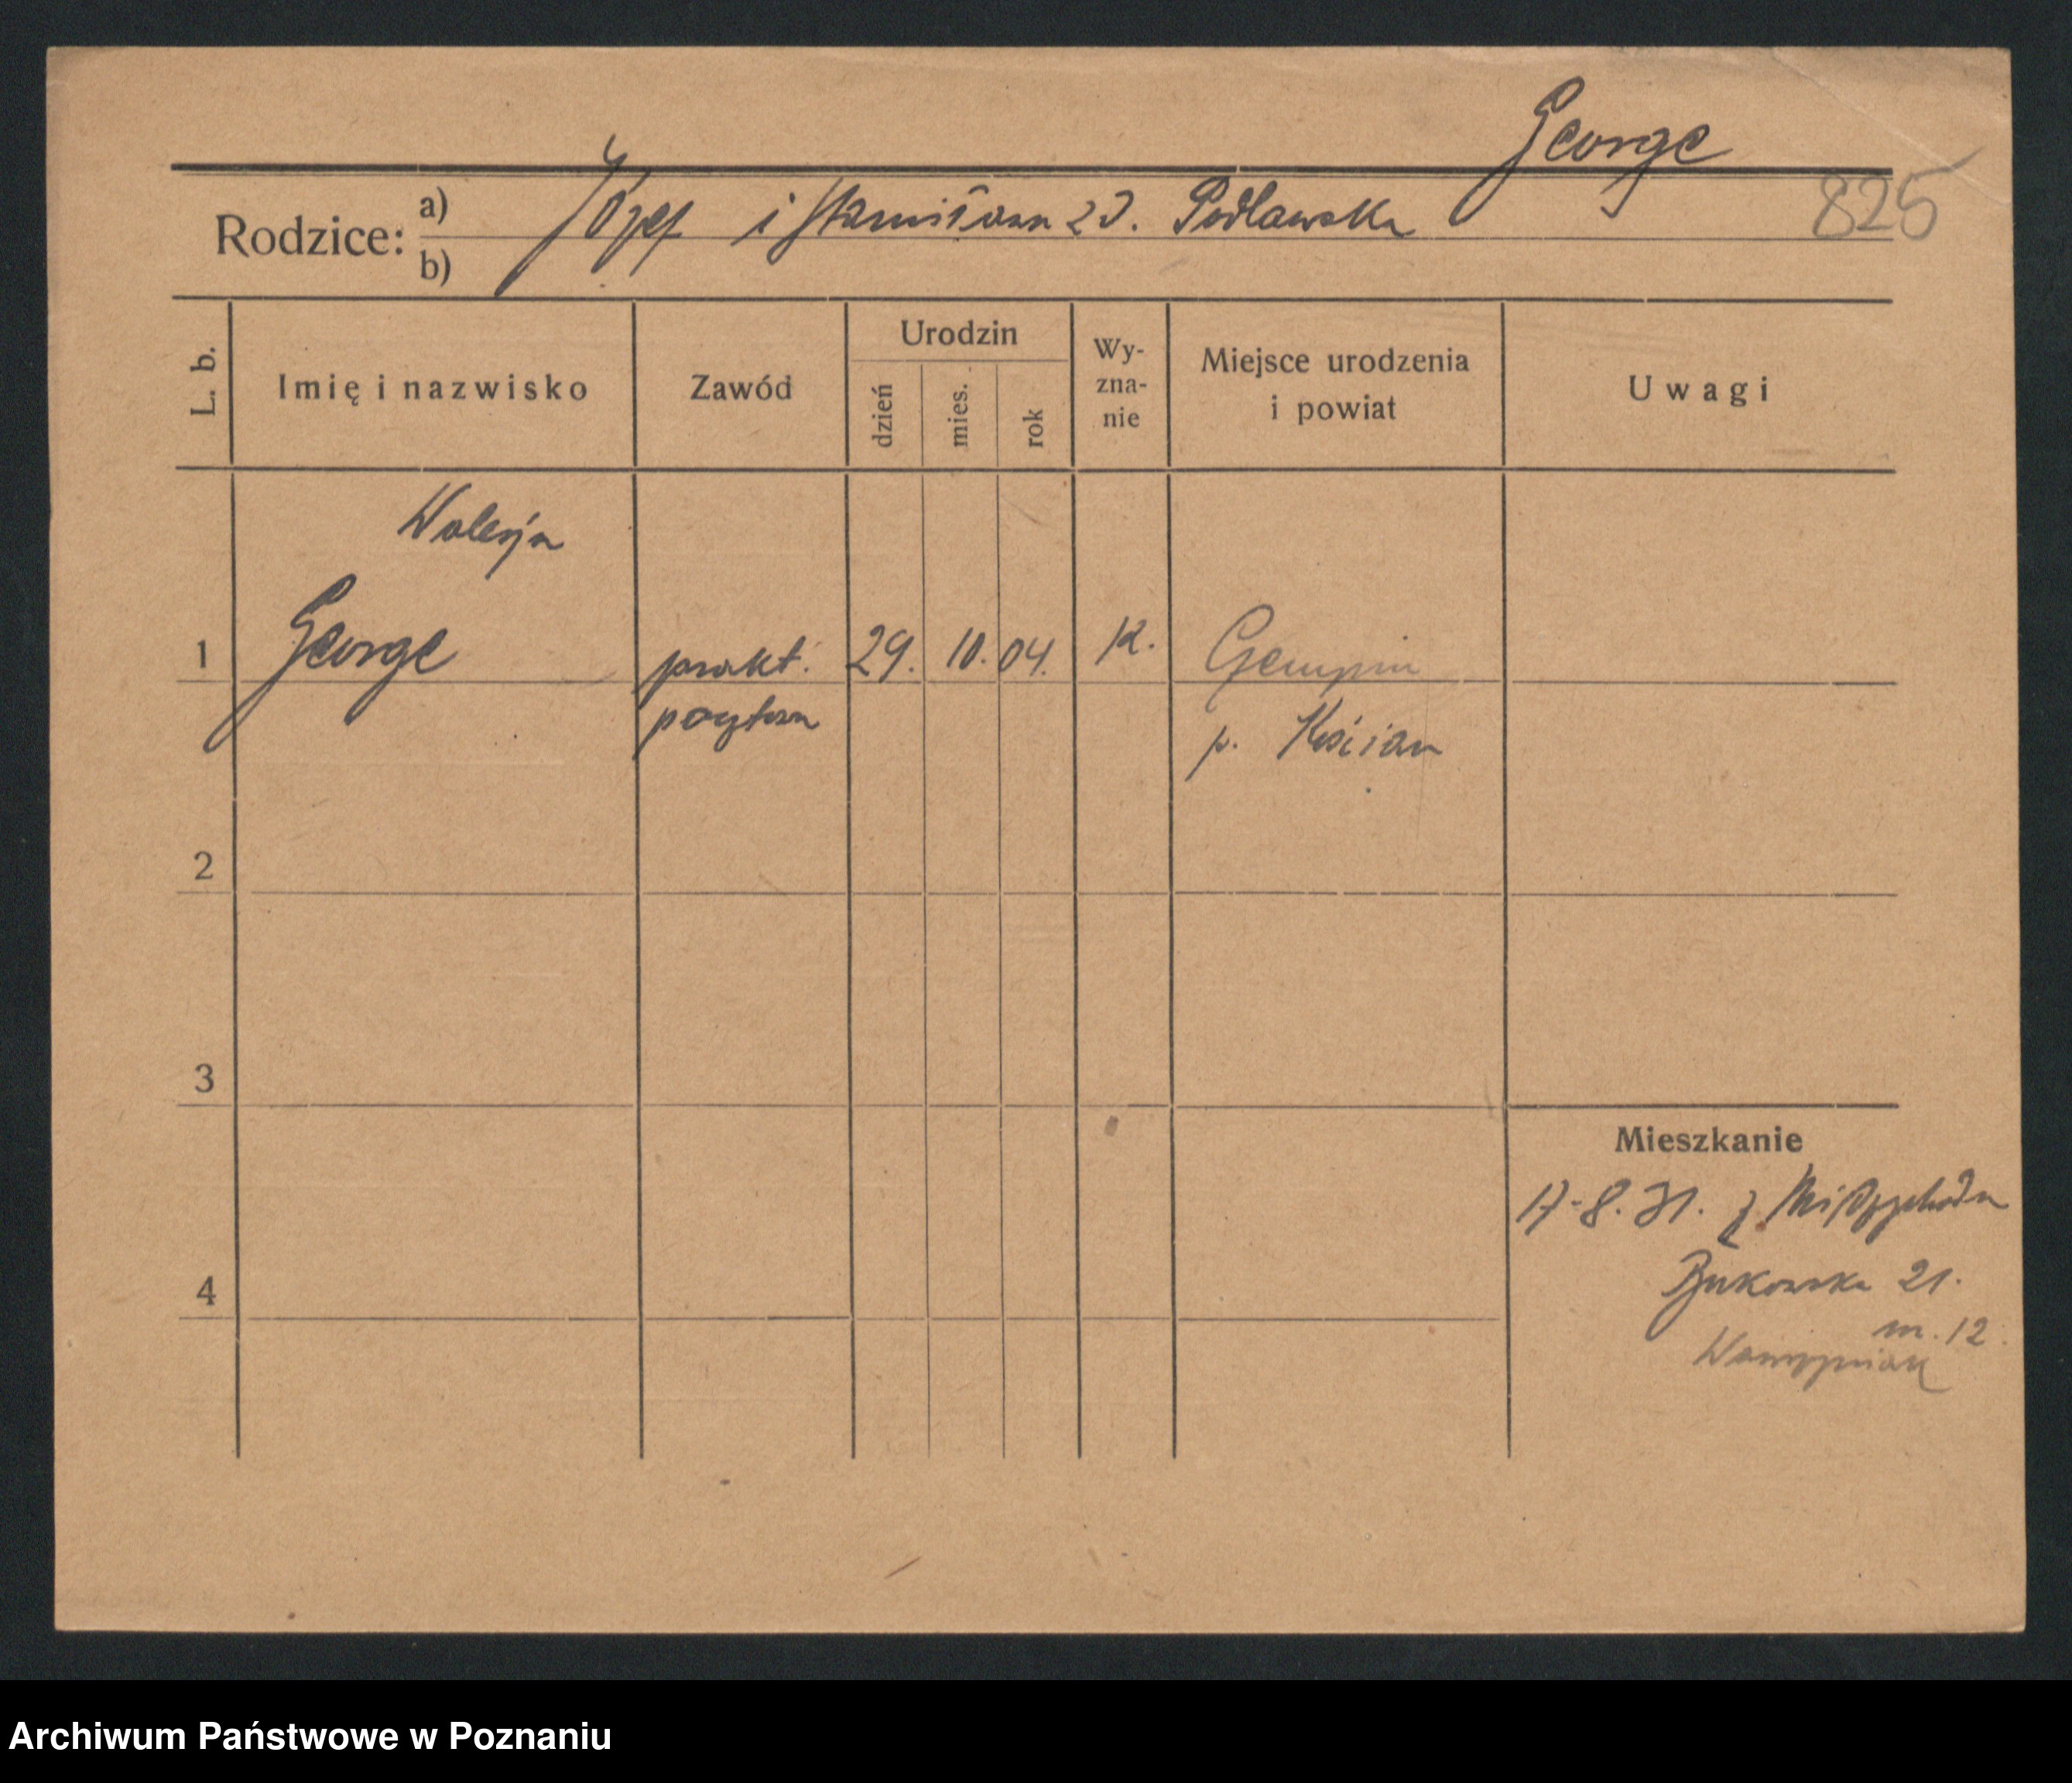 George
825
Rodzice:
a) Józef i Stanisława zd. Podlawska
b)
L. b.
Imię i nazwisko
Zawód
Urodzin
dzień
mies.
rok
Wy-
zna-
nie
Miejsce urodzenia
i powiat
Uwagi
Walerja
1 George prakt. 29. 10. 04. K. Gempin
p. Kościan
2
3
Mieszkanie
17-8.31. z Międzychodu
Bukowska 21.
4
m. 12.
Archiwum Państwowe w Poznaniu